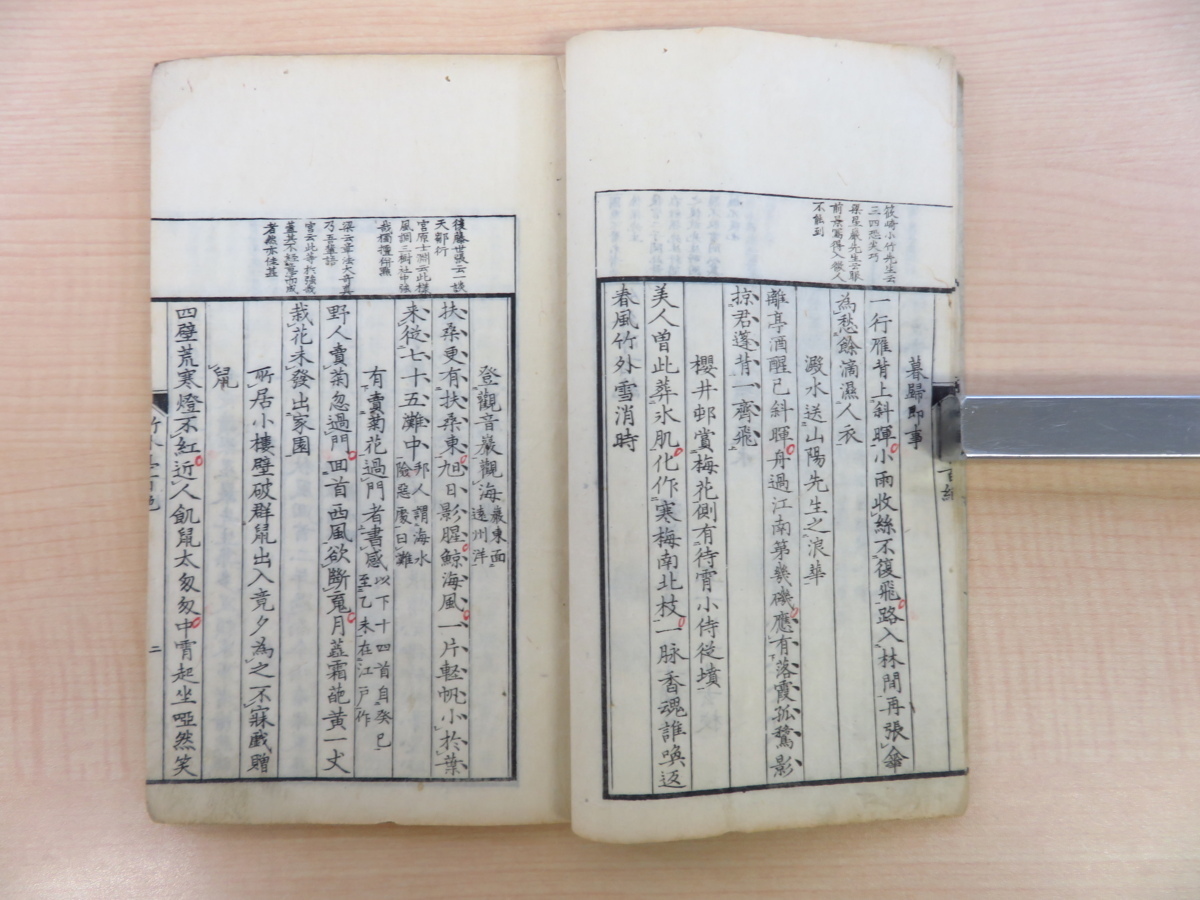 筱崎小竹先生云
三四恐尖巧
梁星巖先生云眼
前景寫得入微人
不能到
暮歸即事
一行雁背上斜暉小雨收絲不復飛路入林間再張傘
為愁餘滴濕人衣
澱水送山陽先生之浪華
離亭酒醒已斜暉舟過江南第幾磯應有落霞孤鶩影
掠君蓬背一齊飛
櫻井邨賞梅花側有待宵小侍從墳
美人曽此葬氷肌化作寒梅南北枝一脉香魂誰喚返
春風竹外雪消時
後藤世張云一談
天鄒衍
宮原士淵云此様
風調三樹社中強
梁云章法大奇真
乃吾輩語
登觀音巖觀海巖東面遠州洋
扶桑更有扶桑東旭日影腥鯨海風一片軽帆小於葉
来從七十五灘中邪人謂海水險惡處曰灘
有賣菊花過門者書感以下十四首自癸巳至乙未在江戸作
野人賣菊忽過門回首西風欲斷䰟月蕋霜葩黄一丈
栽花未發出家園
所居小樓壁破群鼠出入竟夕為之不寐戲贈
鼠
四壁荒寒燈不紅近人飢鼠太匆匆中宵起坐啞然笑
二